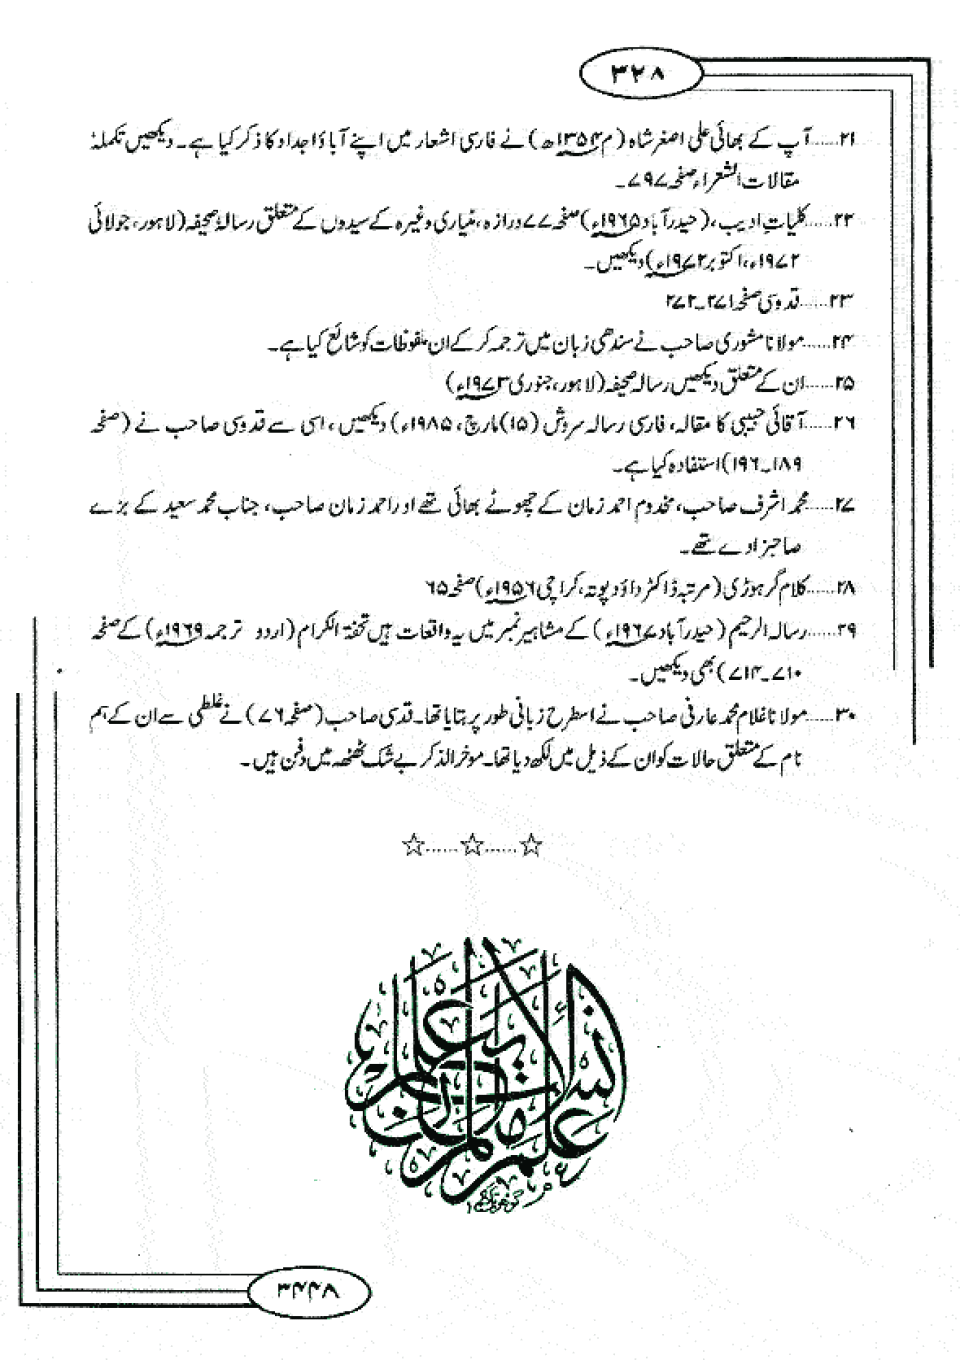 ۳۲۸
۲۱......آپ کے بھائی علی اصغر شاہ (م ۱۳۵۴ھ) نے فارسی اشعار میں اپنے آباؤ اجداد کا ذکر کیا ہے۔ دیکھیں تکملۂ
مقالات الشعراء صفحہ ۷۹۷۔
۲۲......کلیاتِ ادیب، (حیدرآباد ۱۹۶۵ء) صفحہ ۷۷ درازہ، نیاری وغیرہ کے سیدوں کے متعلق رسالۂ صحیفہ (لاہور، جولائی
۱۹۷۲ء، اکتوبر ۱۹۷۲ء) دیکھیں۔
۲۳......قدوسی صفحہ ۲۷۱۔۲۷۲
۲۴......مولانا مشوری صاحب نے سندھی زبان میں ترجمہ کر کے ان ملفوظات کو شائع کیا ہے۔
۲۵......ان کے متعلق دیکھیں رسالہ صحیفہ (لاہور، جنوری ۱۹۷۳ء)
۲۶......آقائی حبیبی کا مقالہ، فارسی رسالہ سروش (۱۵) مارچ، ۱۹۸۵ء) دیکھیں، اسی سے قدوسی صاحب نے (صفحہ
۱۸۹۔۱۹۶) استفادہ کیا ہے۔
۲۷......محمد اشرف صاحب، مخدوم احمد زمان کے چھوٹے بھائی تھے اور احمد زمان صاحب، جناب محمد سعید کے بڑے
صاحبزادے تھے۔
۲۸......کلام گرہوڑی (مرتبہ ڈاکٹر داؤد پوتہ، کراچی ۱۹۵۶ء) صفحہ ۶۵
۲۹......رسالہ الرحیم (حیدرآباد ۱۹۶۷ء) کے مشاہیر نمبر میں یہ واقعات ہیں تحفۃ الکرام (اردو ترجمہ ۱۹۶۹ء) کے صفحہ
۷۱۰۔۷۱۴) بھی دیکھیں۔
۳۰......مولانا غلام محمد عارفی صاحب نے اسطرح زبانی طور پر بتایا تھا۔ قدسی صاحب (صفحہ ۷۶) نے غلطی سے ان کے ہم
نام کے متعلق حالات کو ان کے ذیل میں لکھ دیا تھا۔ موخر الذکر بے شک ٹھٹھہ میں دفن ہیں۔
☆......☆......☆
علم الإنسان ما لم يعلم
۳۴۴۸